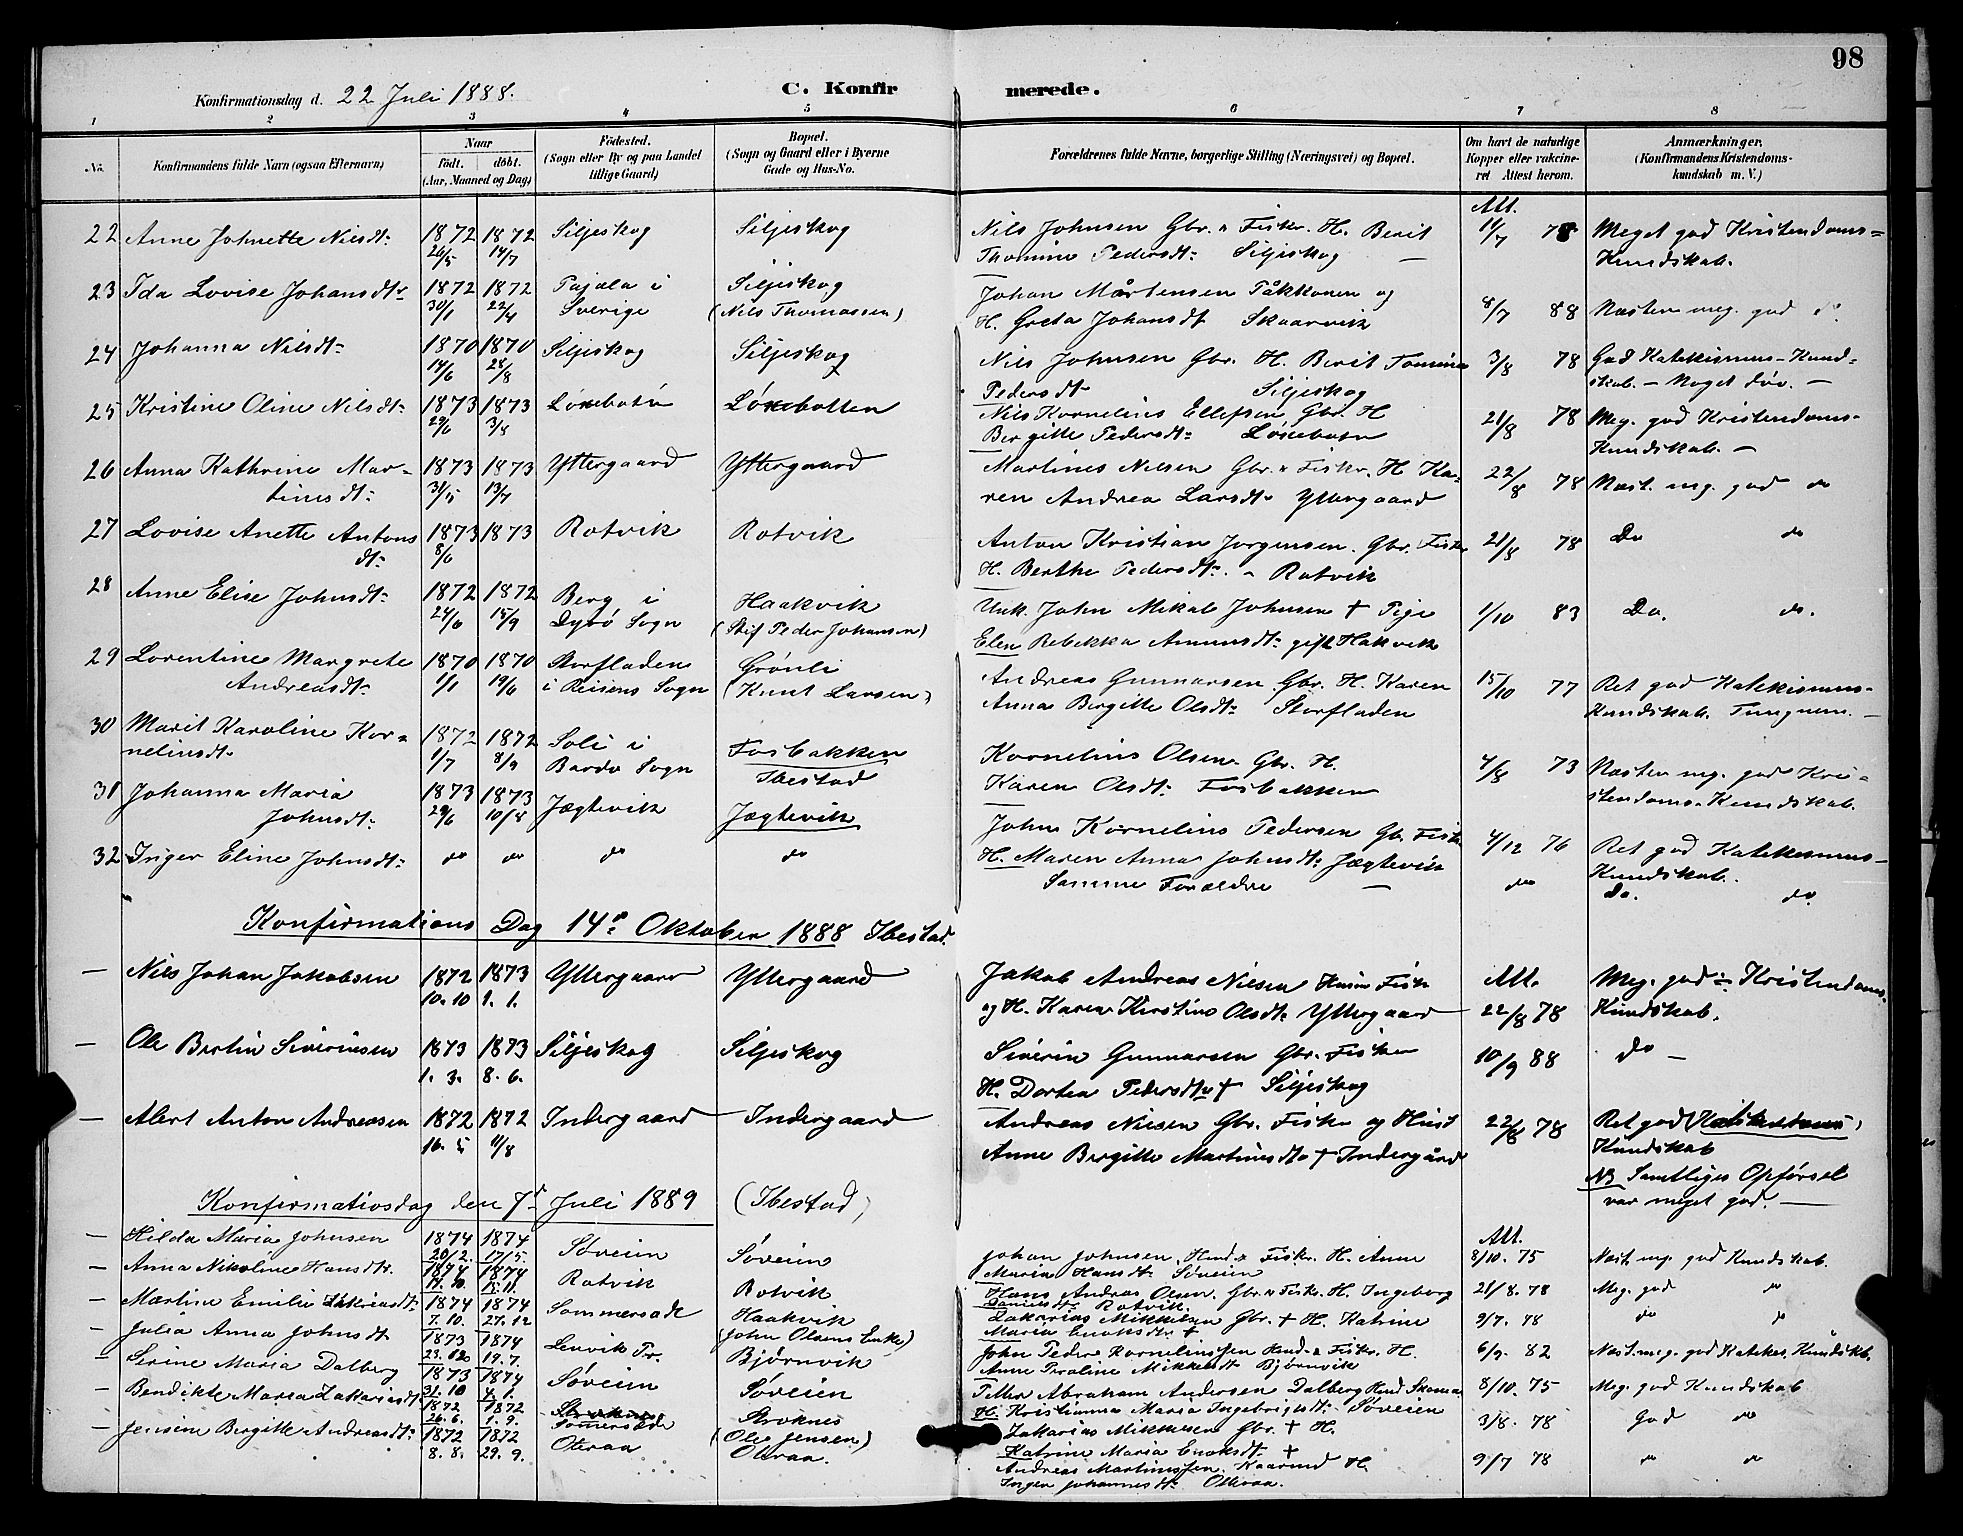 98
Konfirmationsdag d. 22 Juli 1888.
C. Konfirmerede.
1 2 3 4 5 6 7 8
No.
Konfirmandens fulde Navn (ogsaa Efternavn)
Naar
födt. döbt.
(Aar, Maaned og Dag)
Födested.
(Sogn eller By og paa Landet
tillige Gaard)
Bopæl.
(Sogn og Gaard eller i Byerne
Gade og Hus-No.
Forældrenes fulde Navne, borgerlige Stilling (Næringsvei) og Bopæl.
Om havt de naturlige
Kopper eller vakcineret
Attest herom.
Anmærkninger.
(Konfirmandens Kristendomskundskab
m. V.)
Att.
22 Anne Johnette Nilsdt: 1872 1872 Siljeskog Siljeskog Nils Johnsen Gbr. & Fiskr. H. Berit 78 Meget god Kristendoms-
26/5 14/7 Thomine Pedersdt: Siljeskog — Kundskab.
23 Ida Lovise Johansdt: 1872 1872 Pajala i Siljeskog Johan Mårtensen Påkkonen og 8/7 88 Næsten meg. god do.
30/1 22/4 Sverige (Nils Thomassen) H. Greta Johansdt Skaarvik
24 Johanna Nilsdt: 1870 1870 Siljeskog Siljeskog Nils Johnsen Gbr. H. Berit Tomine 3/8 78 God Katekismus-Kund-
14/6 28/8 Pedersdt Siljeskog skab. — Noget döv. —
25 Kristine Oline Nilsdt: 1873 1873 Löxebotn Löxebotten Nils Kornelius Ellefsen Gbr. H 21/8 78 Meg. god Kristendoms-
29/6 3/8 Bergitte Pedersdt: Löxebotn Kundskab. —
26 Anna Kathrine Mar- 1873 1873 Yttergaard Yttergaard Martines Nilsen Gbr. & Fiskr. H Ka- 22/8 78 Næst. mg. god do
tinusdt: 31/5 13/7 ren Andrea Larsdt Yttergaard
27 Lovise Anette Antons 1873 1873 Rotvik Rotvik Anton Kristian Jørgensen. Gbr. Fiskr 21/8 78 Do do
dt: 8/6 H. Berthe Pedersdt: - Rotvik
28 Anne Elise Johnsdt: 1872 1872 Berg i Haakvik Unk. John Mikal Johnsen † Pige 1/10 83 Do. do.
24/6 15/9 Dyrö Sogn (Stif Peder Johansen) Elen Rebekka Amundsdt: gift Hakvik
29 Lorentine Margrete 1870 1870 Storfladen Grönli Andreas Gunnarsen Gbr. H. Karen 15/10 77 Ret god Katekismus-
Andreasdt: 1/1 19/6 i Reisens Sogn (Knut Larsen) Anna Birgitte Olsdt: Storfladen Kundskab. Tungnem. —
30 Marit Karoline Kor- 1872 1872 Soli i Fosbakken Kornelius Olsen Gbr. H. 4/8 73 Næsten mg. god Kri-
neliusdt: 1/7 8/9 Bardo Sogn Ibestad Karen Olsdt: Fosbakken stendoms-Kundskab.
31 Johanna Maria 1873 1873 Jægtevik Jægtevik John Kornelius Pedersen Gb. Fiskr 4/12 76 Ret god Katekismus-
Johnsdt: 29/6 10/8 H. Maren Anna Johnsdt: Jægtevik Kundskab.
32 Inger Eline Johnsdt: do do do do Samme Forældre — do do. do.
Konfirmations Dag 14de Oktober 1888 Ibestad.
— Nils Johan Jakobsen 1872 1873 Yttergaard Yttergaard Jakob Andreas Nilsen Husm Fisk Att. Meg. god Kristendoms
10. 10 1. 1. og H. Karen Kirstine Olsdt: Yttergaard 22/8 78 Kundskab.
— Ole Bertin Siverinsen 1873 1873 Siljeskog Siljeskog Siverin Gunnarsen Gbr. Fisker 10/9 88 do —
1. 3. 8. 6. H. Dortea Pedersdtr † Siljeskog
— Alert Anton Andreasen 1872 1872 Indergaard Indergaard Andreas Nilsen Gbr. Fisker og Hust 22/8 78 Ret god
16. 5 11/8 Anne Bergitte Martinusdtr † Indergård Kundskab
NB Samtliges Opförsel
var meget god. —
Konfirmationsdag den 7de Juli 1889 (Ibestad)
Att.
— Hilda Maria Johnsen 1874 1874 Söveien Söveien Johan Johnsen, Husmd & Fiskr. H. Anne 8/10. 75 Næst. mg. god Kundskab.
20/2. 17/5. Maria Hansdt: Söveien
— Anna Nikoline Hansdtr. 1874 1874 Rotvik Rotvik Hans Andreas Olsen. Gbr & Fiskr. H. Ingeborg 21/8. 78 Meg. god do
15. 11. Danielsdt: Rotvik.
— Martine Emilie Zakriasdt: 1874 1874 Sommersæde Haakvik Zakarias Mikkelsen Gbr. † H. Katrine 9/7. 78 do do
7. 10. 27. 12 Maria Enoksdtr. †
— Julia Anna Johnsdt 1873 1874 Lenvik Pr. (John Olsens Enke) Bjørnvik John Peder Korneliussen Husmd & Fiskr. H. 6/9. 82 Næst. meg. god Katekes. Kundskb.
23. 12 19. 7. Anne Mikkelsdt Bjørnvik
— Serine Maria Dalberg 1873 1874 Söveien Söveien Petter Abraham Andersen Dalberg Husmd Skomar 8/10. 75 Meg. god Kundskab
31. 10 4. 1. H. Kristianna Maria Ingebrigtsdt: Söveien
— Bendikte Maria Zakariasdt 1872 1872 Sommersæde Stroknes Zakarias Mikkelsen Gbr. † H. 3/8. 78 God do
26. 6. 1. 9. (Ole Jensen) Katrine Maria Enoksdt. †
— Jensine Birgitte Andreasdt: 1872 1872 Oteraa Oteraa. Andreas Martinussen. Kaarmd H. 9/7 78 do do
8. 8. 29. 9. Inger Johannesdt: Oteraa.